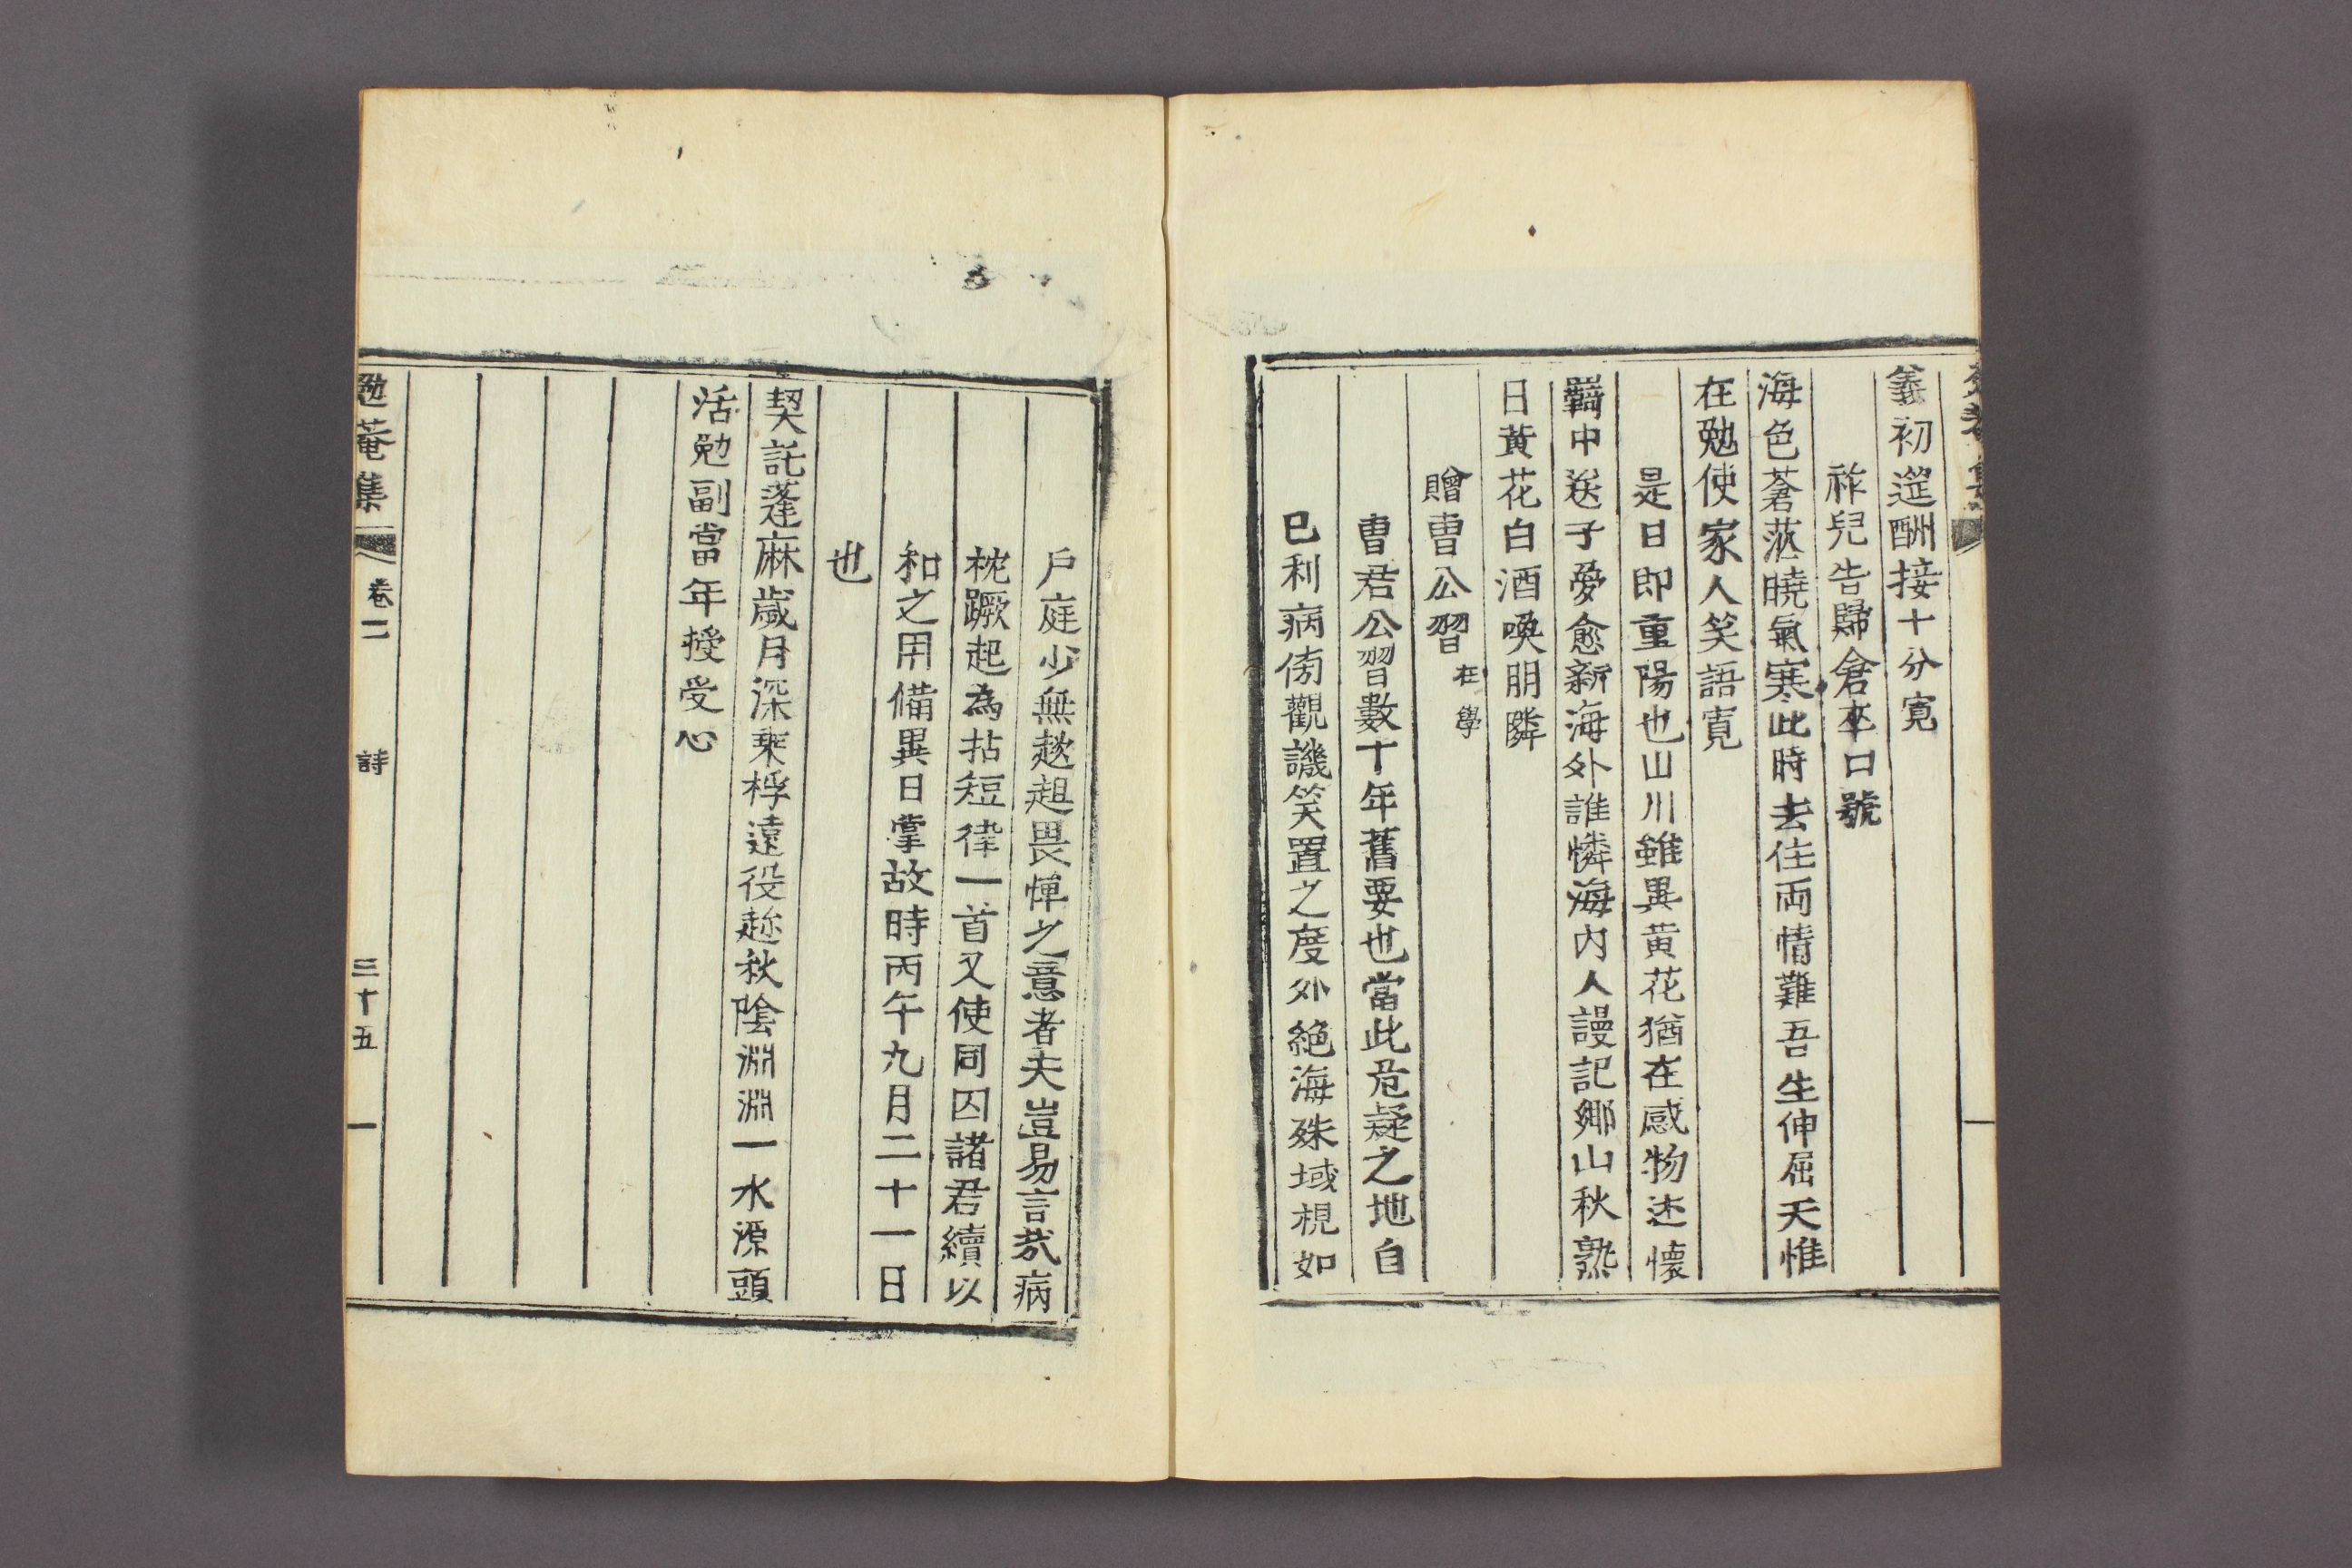 義初筵酬接十分寬
祚兒告歸倉卒口號
海色蒼茫曉氣寒此時去住兩情難吾生伸屈天惟
在勉使家人笑語寬
是日即重陽也山川雖異黃花猶在感物述懷
羇中送子憂愈新海外誰憐海內人謾記鄉山秋熟
日黃花白酒喚朋隣
贈曺公習 在學
曺君公習數十年舊要也當此危疑之地自
已利病傍觀譏笑置之度外絶海殊域視如
戶庭少無趑趄畏憚之意者夫豈易言哉病
枕蹶起為拈短律一首又使同囚諸君續以
和之用備異日掌故時丙午九月二十一日
也
契託蓬麻歲月深乘桴遠役趂秋陰淵淵一水源頭
活勉副當年授受心
勉菴集 卷二 詩 三十五